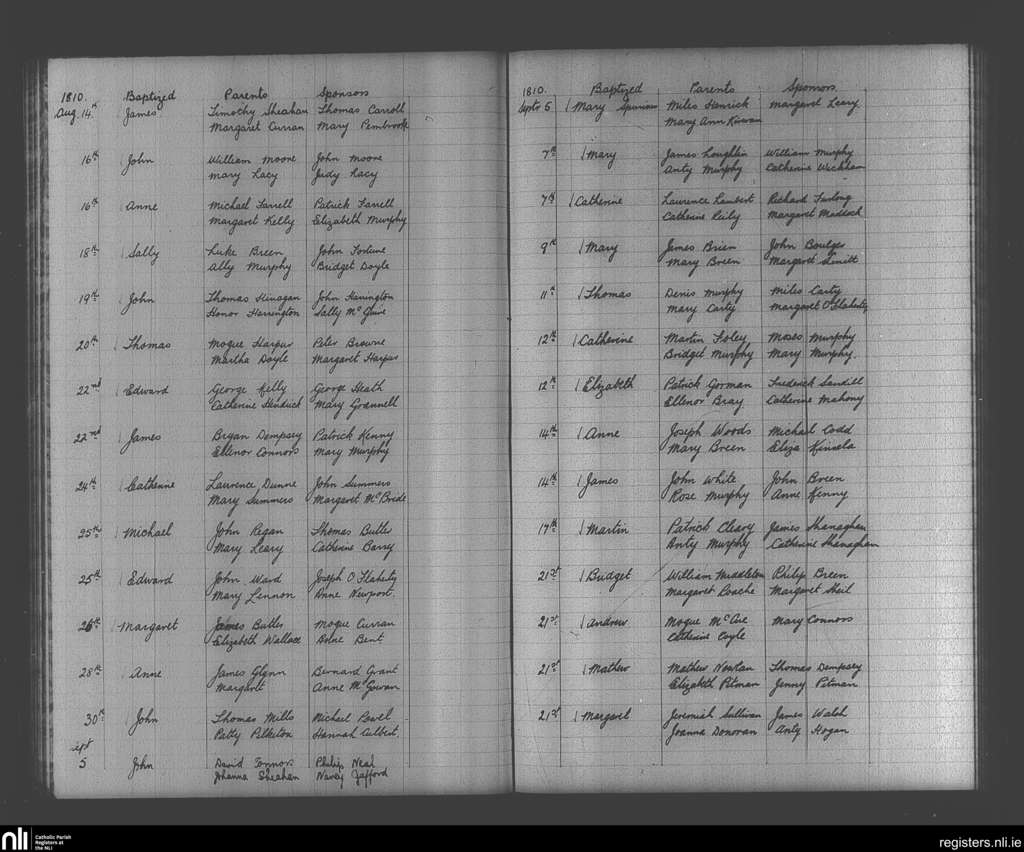 1810. Baptized Parents Sponsors
Aug. 14th James Timothy Sheahan Thomas Carroll
Margaret Curran Mary Pembrook
16th John William Moore John Moore
Mary Lacy Judy Lacy
16th Anne Michael Farrell Patrick Farrell
Margaret Kelly Elizabeth Murphy
18th Sally Luke Breen John Fortune
Ally Murphy Bridget Doyle
19th John Thomas Kinagan John Harrington
Honor Harrington Sally McGuire
20th Thomas Mogue Harpur Peter Browne
Martha Doyle Margaret Harpur
22nd Edward George Kelly George Heath
Catherine Hendrick Mary Grannell
22nd James Bryan Dempsey Patrick Kenny
Ellenor Connors Mary Murphy
24th Catherine Laurence Dunne John Summers
Mary Summers Margaret McBride
25th Michael John Regan Thomas Butler
Mary Leary Catherine Barry
25th Edward John Ward Joseph O'Flaherty
Mary Lennon Anne Newport.
26th Margaret James Batles Mogue Curran
Elizabeth Wallace Anne Bent
28th Anne James Glynn Bernard Grant
Margaret Anne McGowan
30th John Thomas Mills Michael Powel
Patty Pilkiton Hannah Culbert.
Sept
5 John David Connors Philip Neal
Johanna Sheahan Nancy Jafford
1810. Baptized Parents Sponsors.
Septr 6 Mary Miles Henrick Margaret Leary
Mary Ann Kirwan
7th Mary James Loughlin William Murphy
Anty Murphy Catherine Wickham
7th Catherine Laurence Lambert Richard Furlong
Catherine Reily Margaret Maddock
9th Mary James Brien John Boulger
Mary Breen Margaret Sinnitt
11th Thomas Denis Murphy Miles Carty
Mary Carty Margaret O'Flaherty
12th Catherine Martin Foley Moses Murphy
Bridget Murphy Mary Murphy.
12th Elizabeth Patrick Gorman Frederick Sandill
Ellenor Bray Catherine Mahony
14th Anne Joseph Woods Michael Codd
Mary Breen Eliza Kinsela
14th James John White John Breen
Rose Murphy Anne Kenny
17th Martin Patrick Cleary James Shanaghan
Anty Murphy Catherine Shanaghan
21st Bridget William Middleton Philip Breen
Margaret Roache Margaret Sheil
21st Andrew Mogue McCue Mary Connors
Catherine Coyle
21st Mathew Mathew Newtan Thomas Dempsey
Elizabeth Pitman Jenny Pitman
21st Margaret Jeremiah Sullivan James Walsh
Joanna Donovan Anty Hogan
nli Catholic Parish
Registers at
the NLI
registers.nli.ie